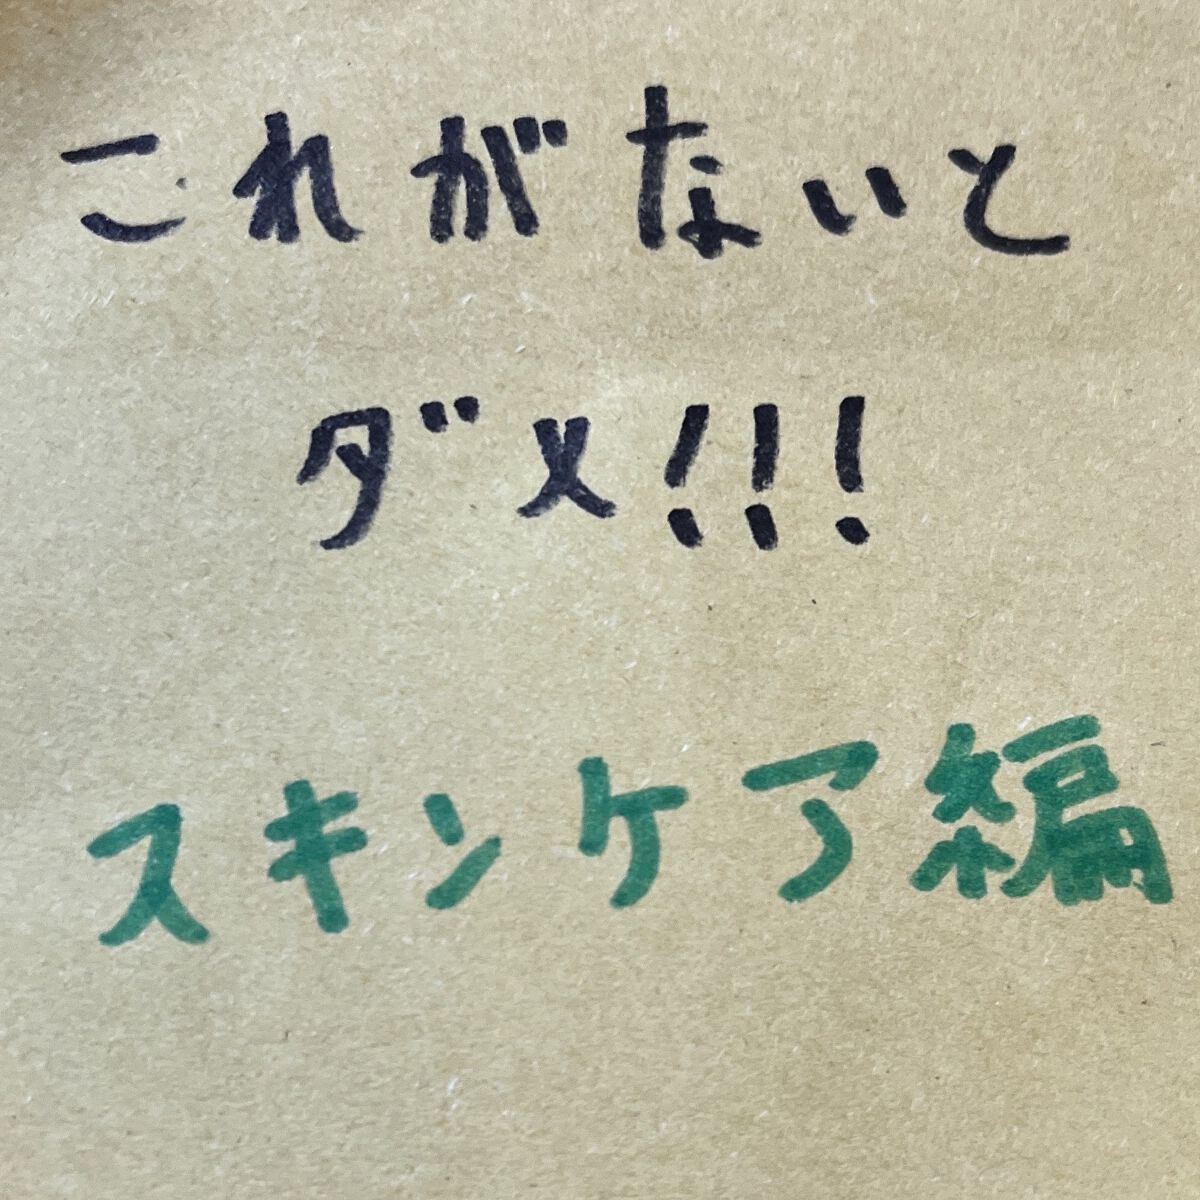 これがないと
ダメ!!!
スキンケア編